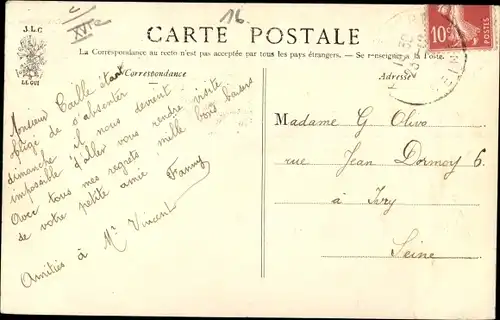 XVIe
16.
J.L.C
LE GUI
CARTE POSTALE
La Correspondance au recto n'est pas acceptée par tous les pays étrangers. — Se renseigner à la Poste.
Correspondance
Monsieur Taille étant
obligé de s'absenter
dimanche il nous devient
impossible d'aller vous rendre visite
Avec tous mes regrets mille bons baisers
de votre petite amie Fanny
Amitiés à Mr Vincent
10c
Adresse
Madame G Olive
rue Jean Dormoy 6
à Ivry
Seine